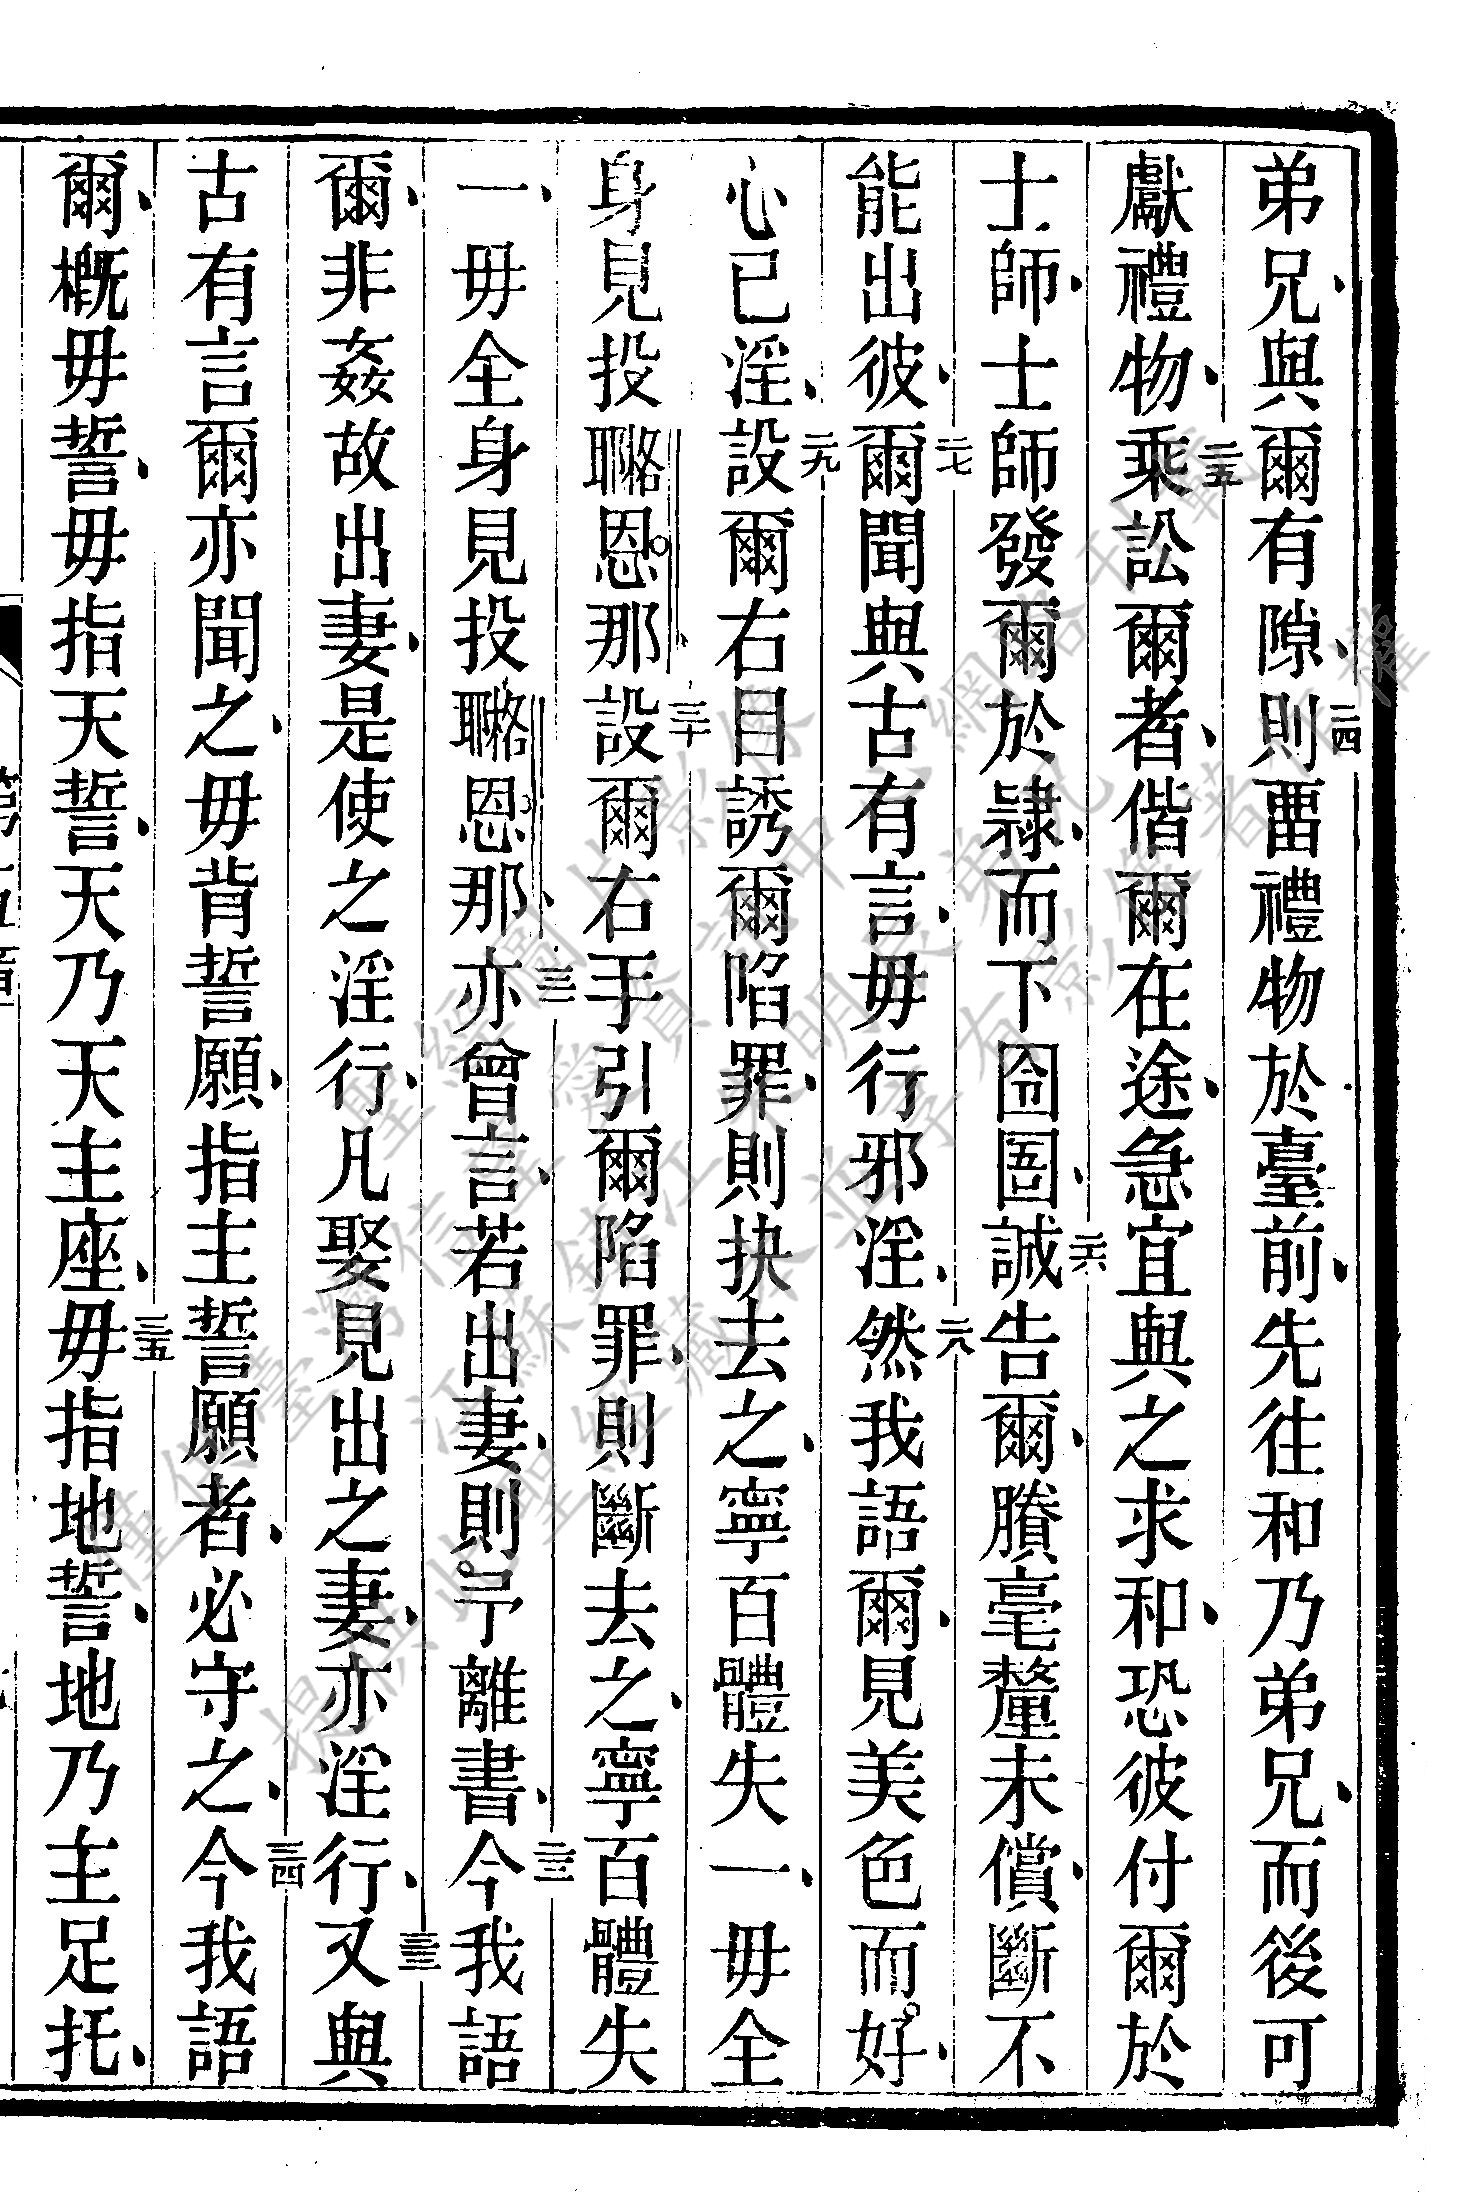 弟兄與爾有隙二四則畱禮物於臺前先往和乃弟兄而後可
獻禮物二五乘訟爾者偕爾在途急宜與之求和恐彼付爾於
士師士師發爾於隷而下囹圄二六誠告爾賸毫釐未償斷不
能出彼二七爾聞與古有言毋行邪淫二八然我語爾見美色而好
心已淫二九設爾右目誘爾陷罪則抉去之寧百體失一毋全
身見投𦗖恩那三十設爾右手引爾陷罪則斷去之寧百體失
一毋全身見投𦗖恩那三一亦曾言若出妻則予離書三二今我語
爾非姦故出妻是使之淫行凡娶見出之妻亦淫行三三又與
古有言爾亦聞之毋背誓願指主誓願者必守之三四今我語
爾概毋誓毋指天誓天乃天主座三五毋指地誓地乃主足托
第五章